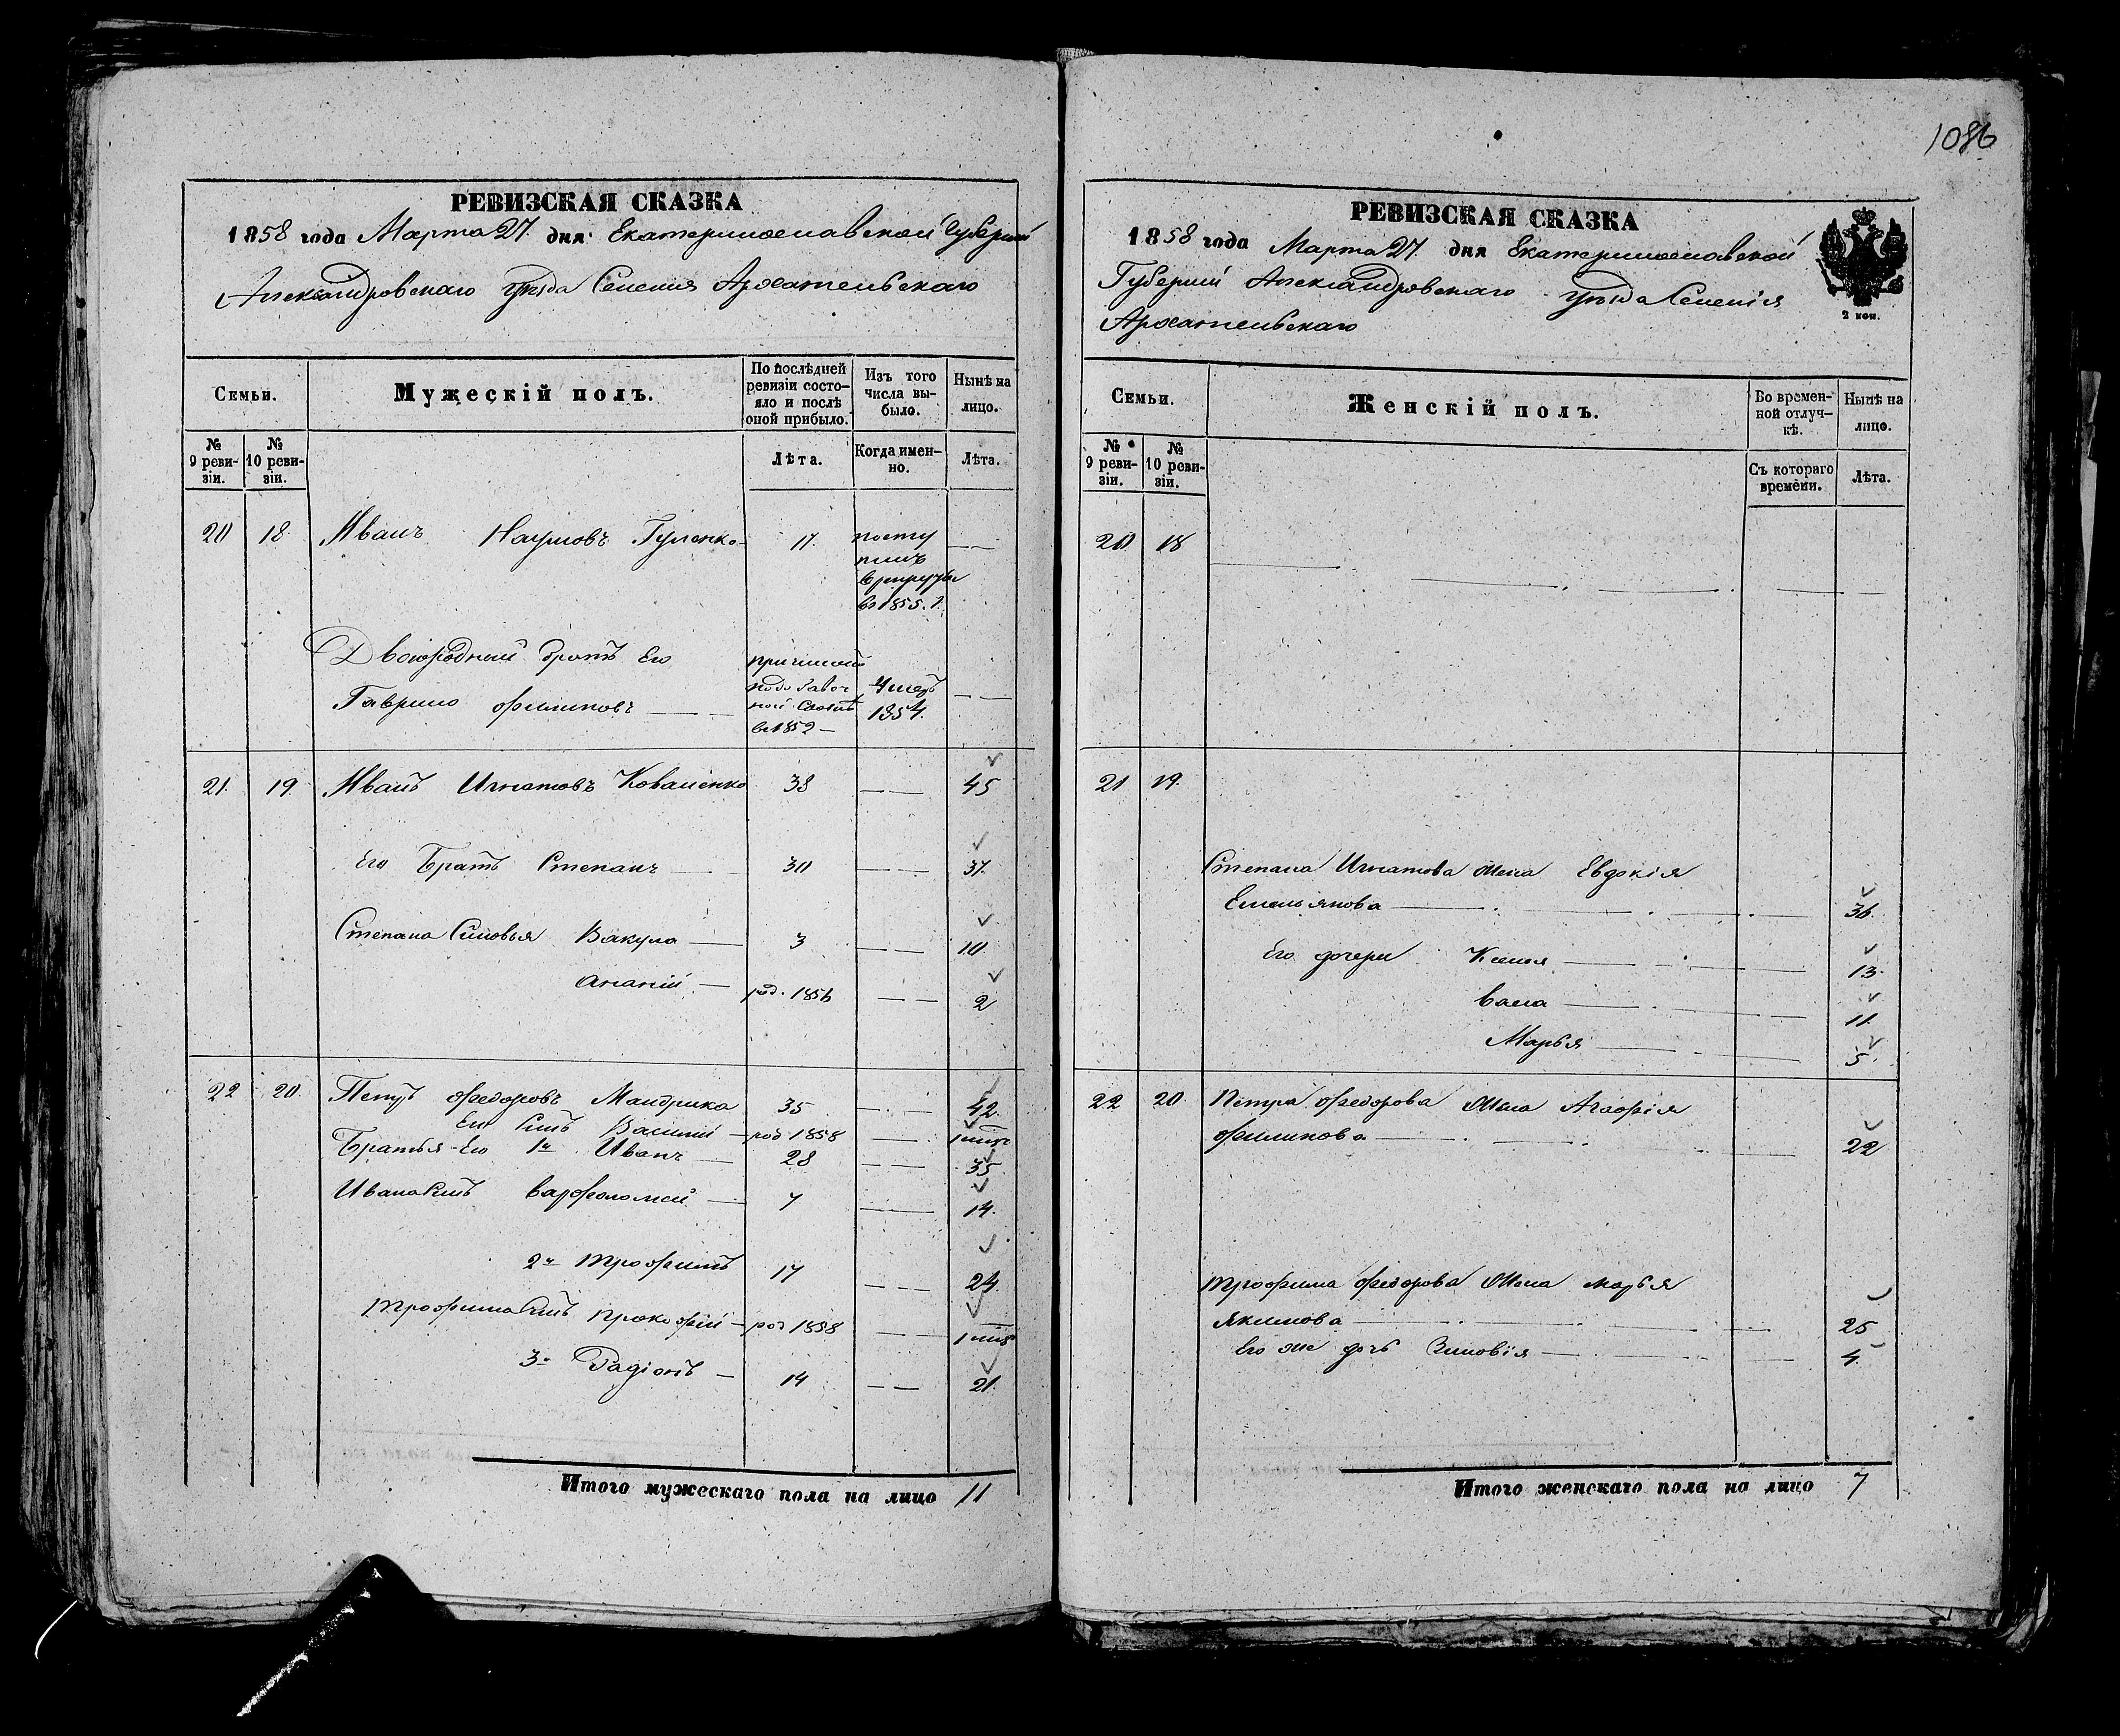 1086
РЕВИЗСКАЯ СКАЗКА
1858 года Марта 27. дня Екатеринославской Губерніи
Александровскаго уѣзда Селенія Архательскаго
Семьи.
Мужескій полъ.
По послѣдней ревизіи состояло и послѣ оной прибыло.
Изъ того числа выбыло.
Нынѣ на лицо.
№ 9 ревизіи.
№ 10 ревизіи.
Лѣта.
Когда именно.
Лѣта.
20 18. Иванъ Наумовъ Гуленко 17. посту
пилъ
в рекруты
въ 1855. г.
Двоюродный братъ Его
Гаврило Филиповъ
въ 1852 1854.
21. 19. Иванъ Игнатовъ Коваленко 38 45
Его Братъ Степанъ 30 37.
Степана Сыновья Вакула 3 10.
Ананій род. 1856 2
22 20. Петръ Федоровъ Мандрика 35 42.
Его Сынъ Василій род 1858
Братья Его 1й Иванъ 28 35
Ивана Сынъ Варфоломей 7 14.
2й Трофимъ 17 24.
Трофима Сынъ Прокофій род 1858
3й Радіонъ 14 21.
Итого мужескаго пола на лицо 11
РЕВИЗСКАЯ СКАЗКА
1858 года Марта 27. дня Екатеринославской
Губерніи Александровскаго уѣзда Селенія
Архательскаго
2 коп.
Семьи.
Женскій полъ.
Во временной отлучкѣ.
Нынѣ на лицо.
№ 9 ревизіи.
№ 10 ревизіи.
Съ котораго времени.
Лѣта.
20 18
21 19.
Степана Игнатова Жена Евдокія
Емельянова 36.
Его дочери Ксенья 13.
11.
Марья 5.
22 20. Петра Федорова Жена Агафія
Филипова 22
Трофима Федорова Жена Марья
Якимова 25
Его же дочь Зиновія 4.
Итого женскаго пола на лицо 7